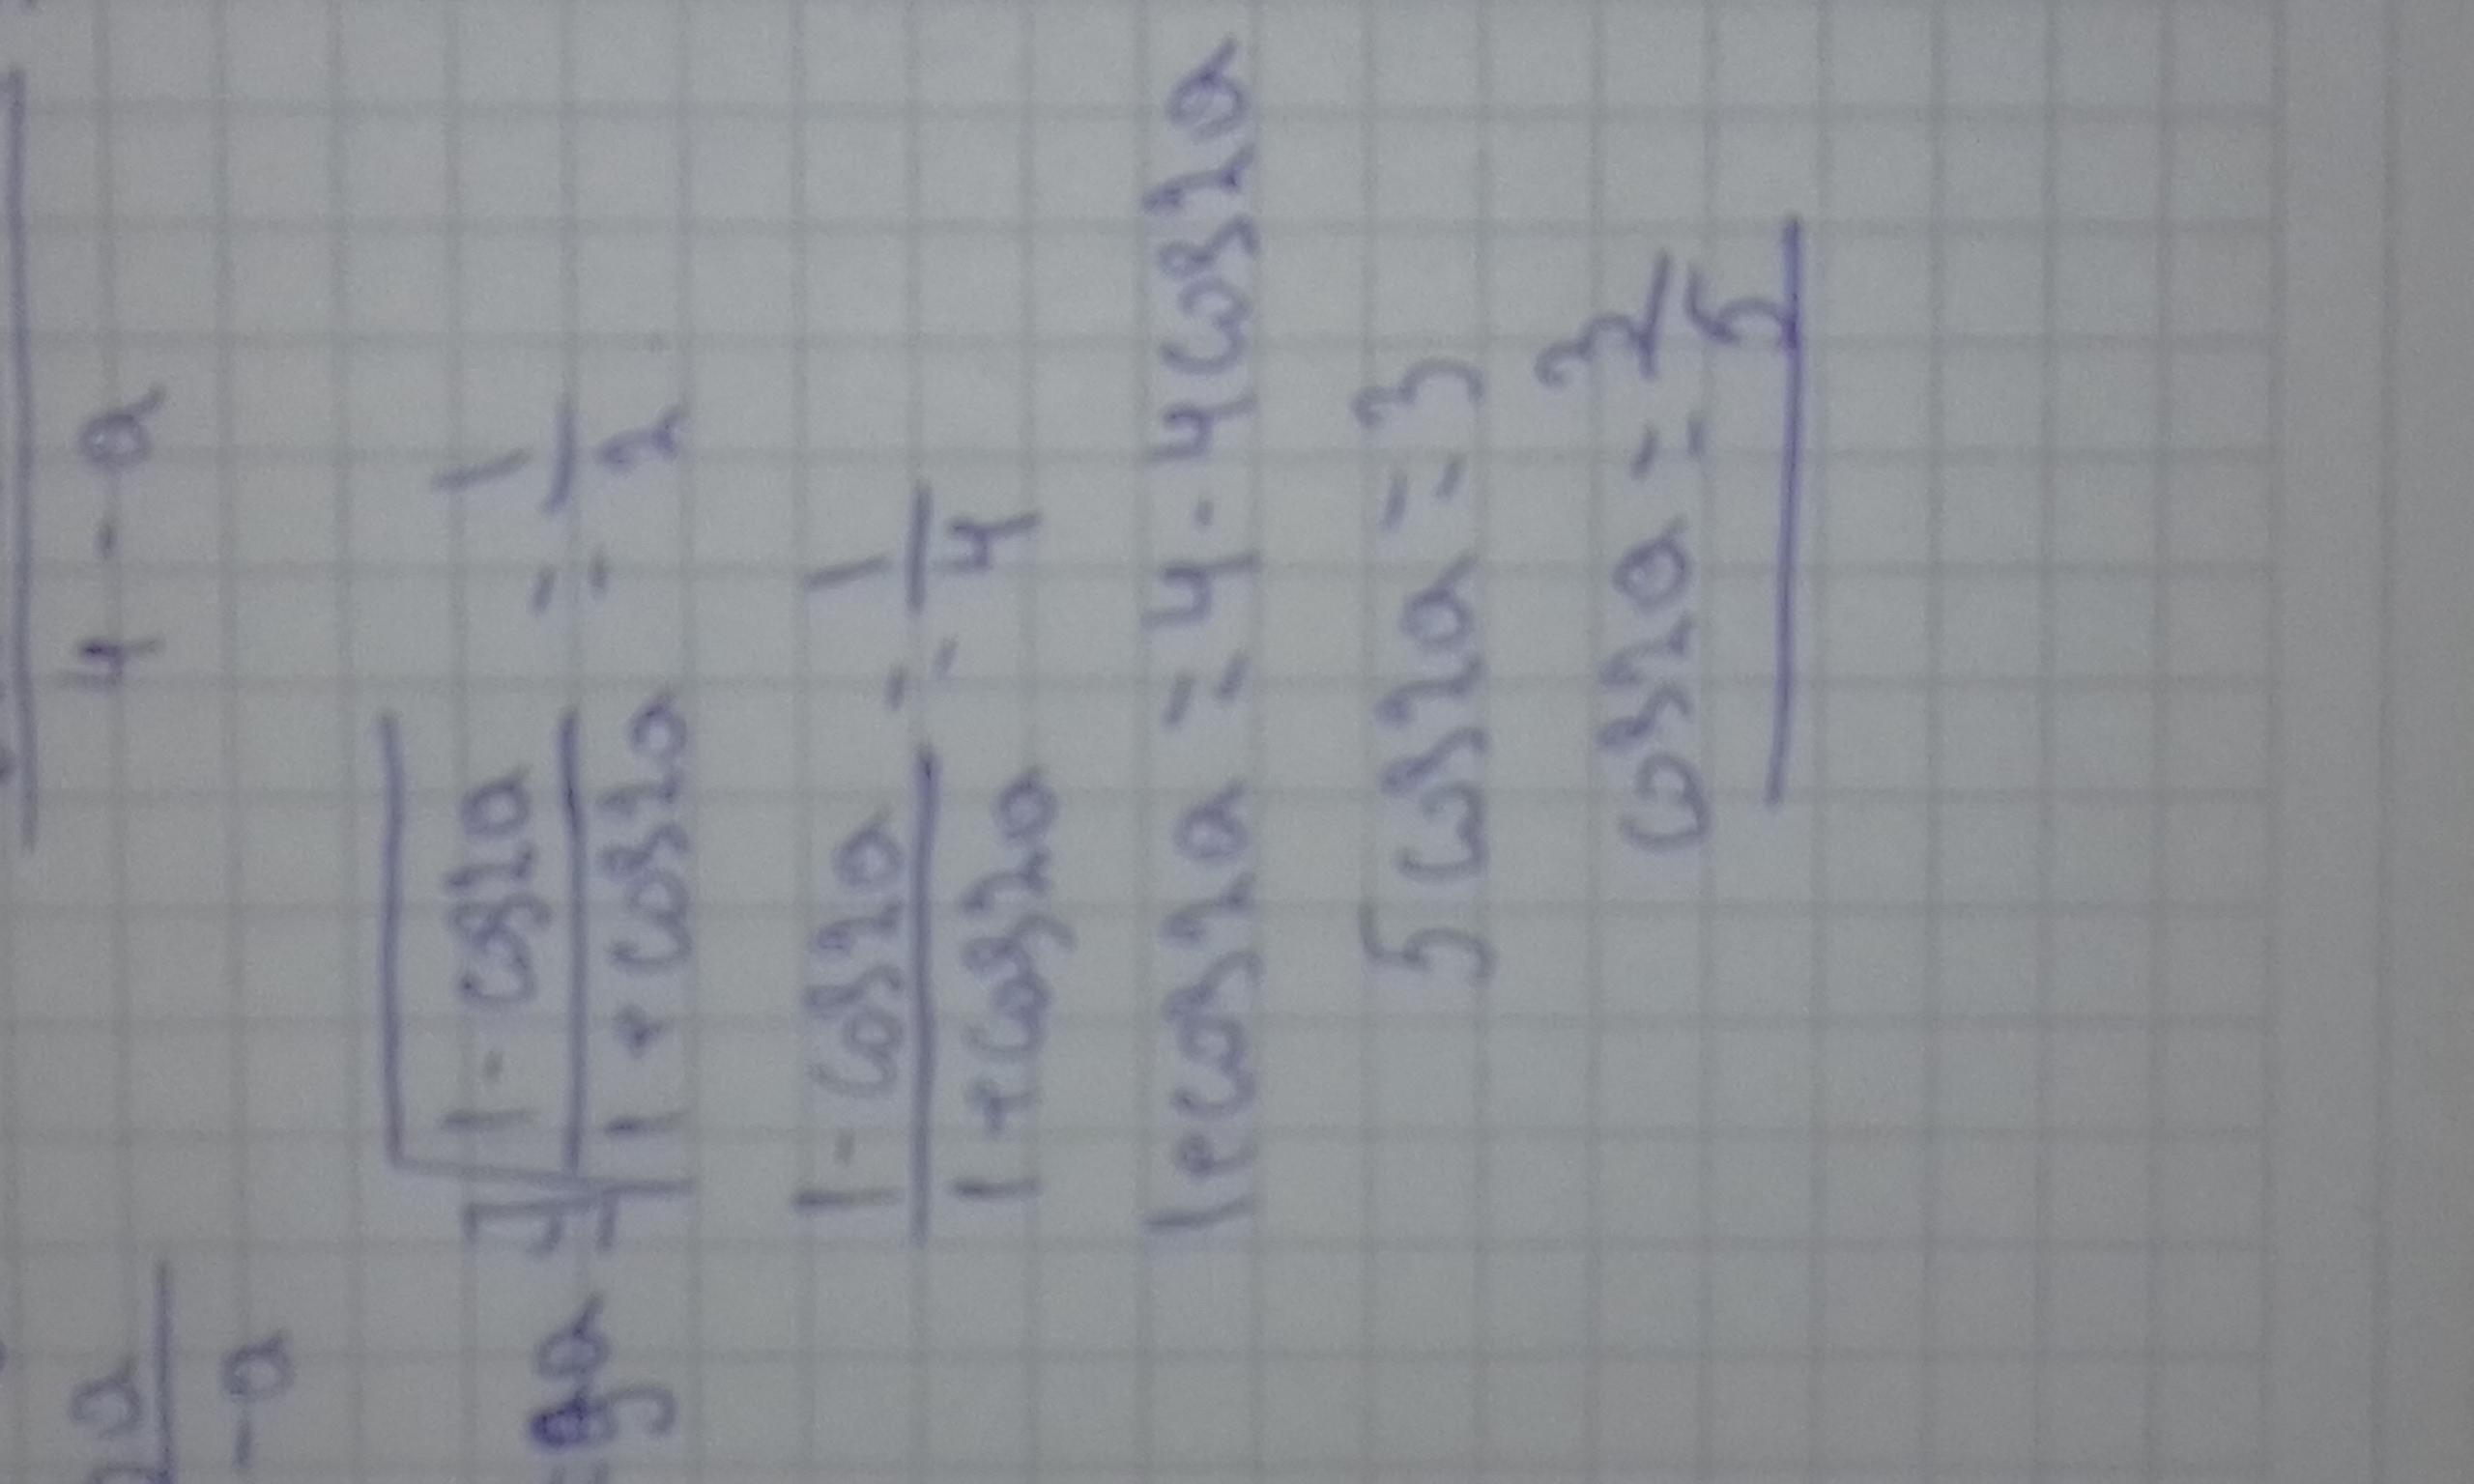 4 - a
a
- a
ga = √((1 - cos2a)/(1 + cos2a)) = 1/2
(1 - cos2a)/(1 + cos2a) = 1/4
1 + cos2a = 4 - 4cos2a
5cos2a = 3
cos2a = 3/5